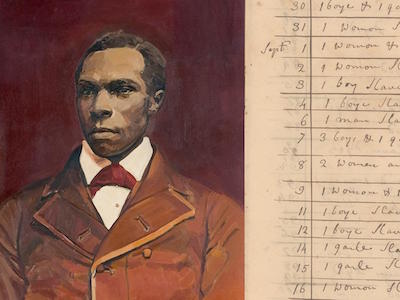 30 1 boye & 1 ga
31 1 Woman S
Sept 1 1 Woman &
2 1 Woman S
3 1 boy Slave
4 1 boye Sla
6 1 man Sla
7 3 boys & 1 g
8 2 Women an
9 1 Woman &
11 1 boye Sla
12 1 boye Slav
14 1 garle Sla
15 1 garle Sl
16 1 Woman